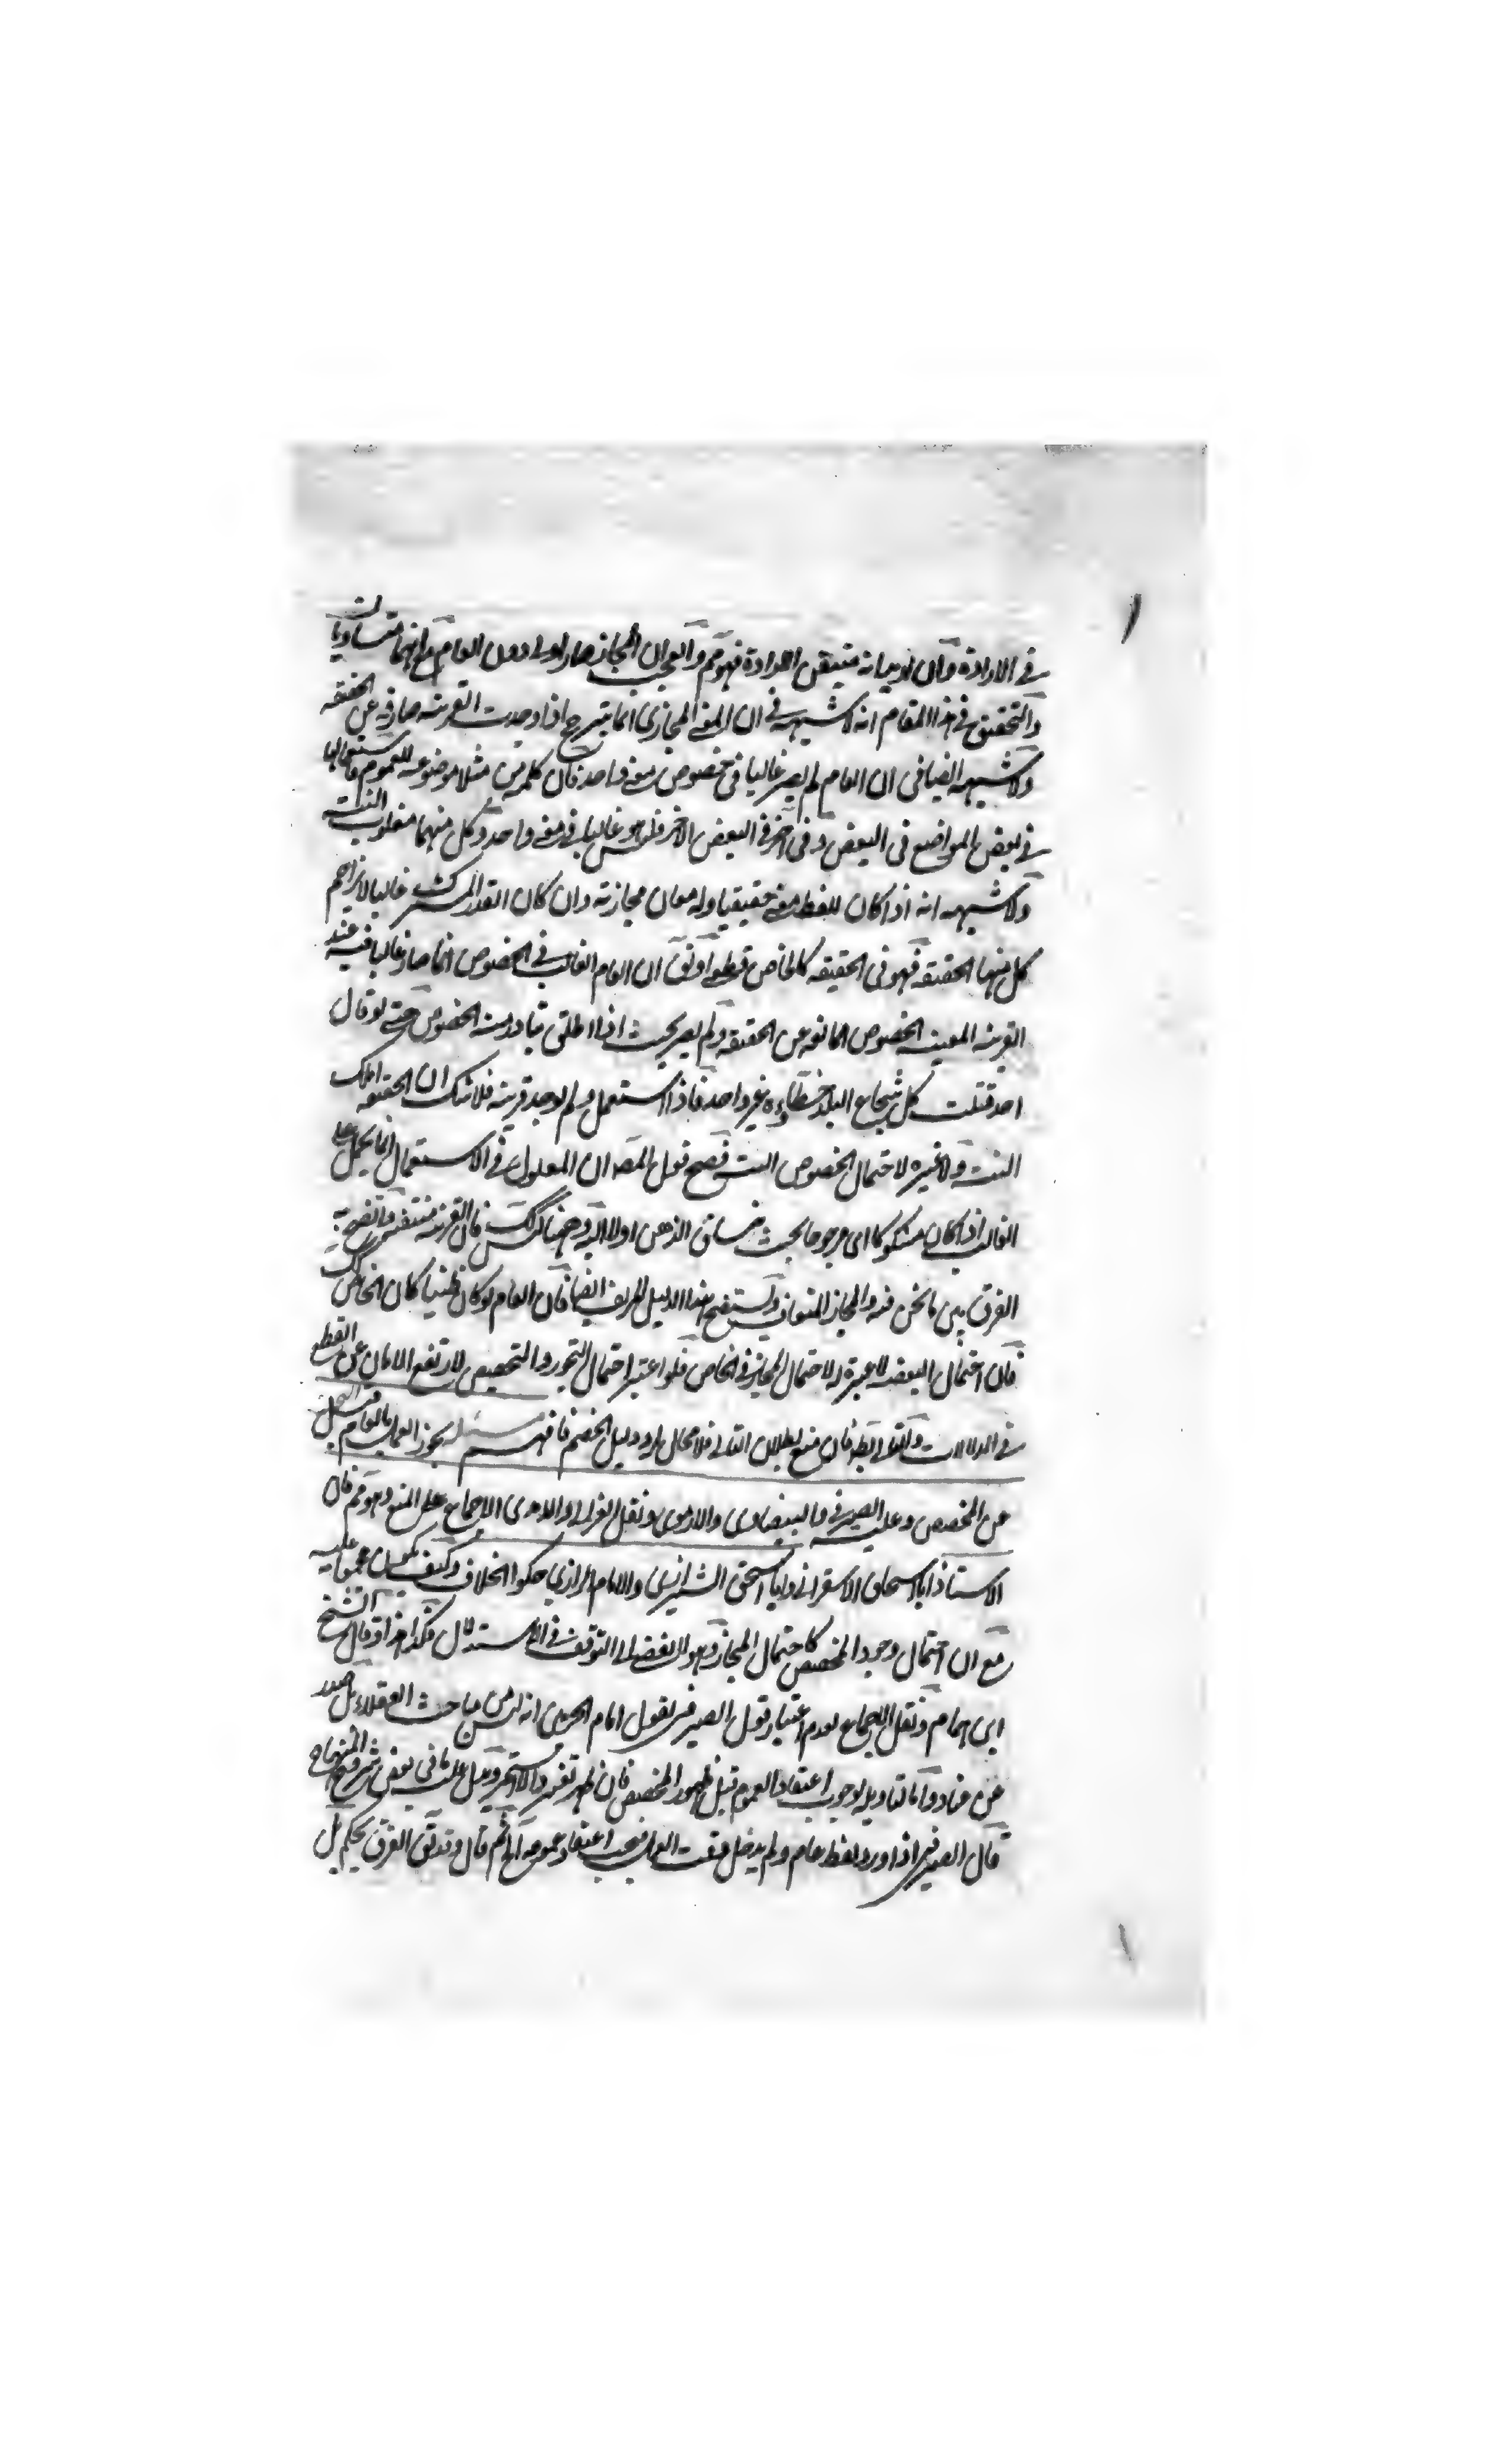 في الارادة وان اريد انه متيقن الارادة فهو مم والعجب ان المجاز صار اولى دون العام مع انهما متساويان
والتحقيق في هذا المقام انه لا شبهه في ان المعنى المجازي انما يترجح اذا وجدت القرينه صارفه عن الحقيقه
ولا شبهه ايضا في ان العام لم يصر غالبا في خصوص معنى واحد فان كلمه من مثلا موضوعه للعموم فاستعمالها
في بعض المواضع في البعض وفي آخر في البعض الآخر فليس هو غالبا في معنى واحد وكل منهما مغلوب البته
ولا شبهه انه اذا كان للفظ معنى حقيقيا وله معان مجازيه وان كان القدر المشترك غالبا لا يزاحم
كل منها الحقيقه فهو في الحقيقه كالخاص قطعي او نق ان العام الغالب في الخصوص انما صار غالبا فيه عند
القرينه المعينه الخصوص المانعه عن الحقيقه ولم يصر بحيث اذا اطلق تبادر منه الخصوص حتى لو قال
احد قتلت كل شجاع البلد خطاءه غير واحد فاذا استعمل ولم يوجد قرينه فلا شك ان الحقيقه املك
البته ولا غيره لاحتمال الخصوص البته فصح قول المصه ان المعلول في الاستعمال انما يحمل على
الغالب اذا كان مشكوكا اي مرجوحا بحيث ينساق الذهن اولا اليه وههنا ليس كك فان القرينه منتفيه واتضح به
الفرق بين ما نحن فيه والمجاز المتعارف وليتضح هذا الدليل لطريف ايضا فان العام لو كان ظنيا كان الخاص كك
فان احتمال البعض لا عبرة له لاحتمال المجاز في الخاص فلو اعتبر احتمال التجوز والتخصيص لارتفع الامان عن القطع
في الدلالات والتالي بط فان منع بطلان التالي فلا مجال لرد دليل الخصم فافهم مسئله يجوز العمل بالعام قبل البحث
عن المخصص وعليه الصيرفي والبيضاوي والارموي ونقل الغزالي والآمدي الاجماع على المنع وهو مم فان
الاستاذ ابا اسحاق الاسفرائني وابا اسحق الشيرازي والامام الرازي حكوا الخلاف وكيف يكون مجمعا عليه
مع ان احتمال وجود المخصص كاحتمال المجاز وهو لا يفضي الى التوقف في الاستدلال فكذا هذا وقال الشيخ
ابن همام ونقل الاجماع لعدم اعتبار قول الصيرفي لقول امام الحرمين انه ليس من مباحث العقلاء بل صدر
عن عناد واما تاويله لوجوب اعتقاد العموم قبل ظهور المخصص فان ظهر تغير والا استمر ويدل عليه ما في بعض شروح المنهاج
قال الصيرفي اذا ورد لفظ عام ولم يدخل وقت العمل فيجب اعتقاد عمومه اه ثم قال وقد نق الفرق تحكم بل